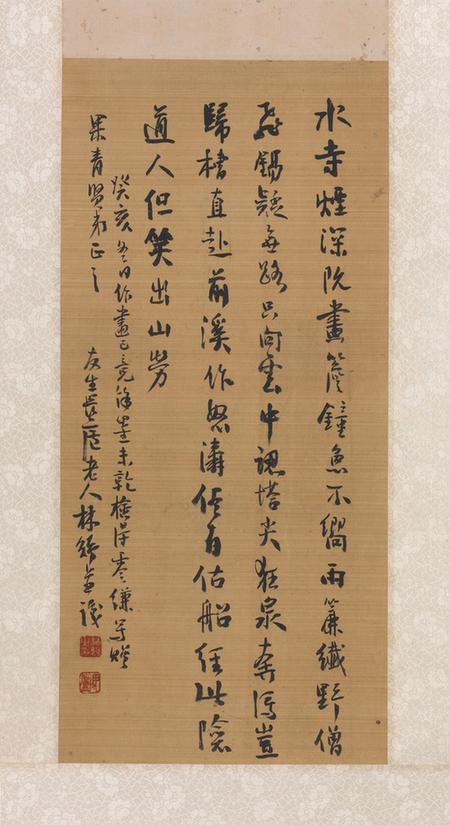 水寺煙深畫簷鐘魚不響雨簾纖野僧
飛錫疑無路只向雲中認塔尖狂泉奔瀉豈
歸槽直赴前溪作怒濤有估船經此險
道人但笑出山勞
癸亥冬日作畫已竟餘墨未乾檢得零縑寫贈
果青賢弟正之
友生畏廬老人林紓並識